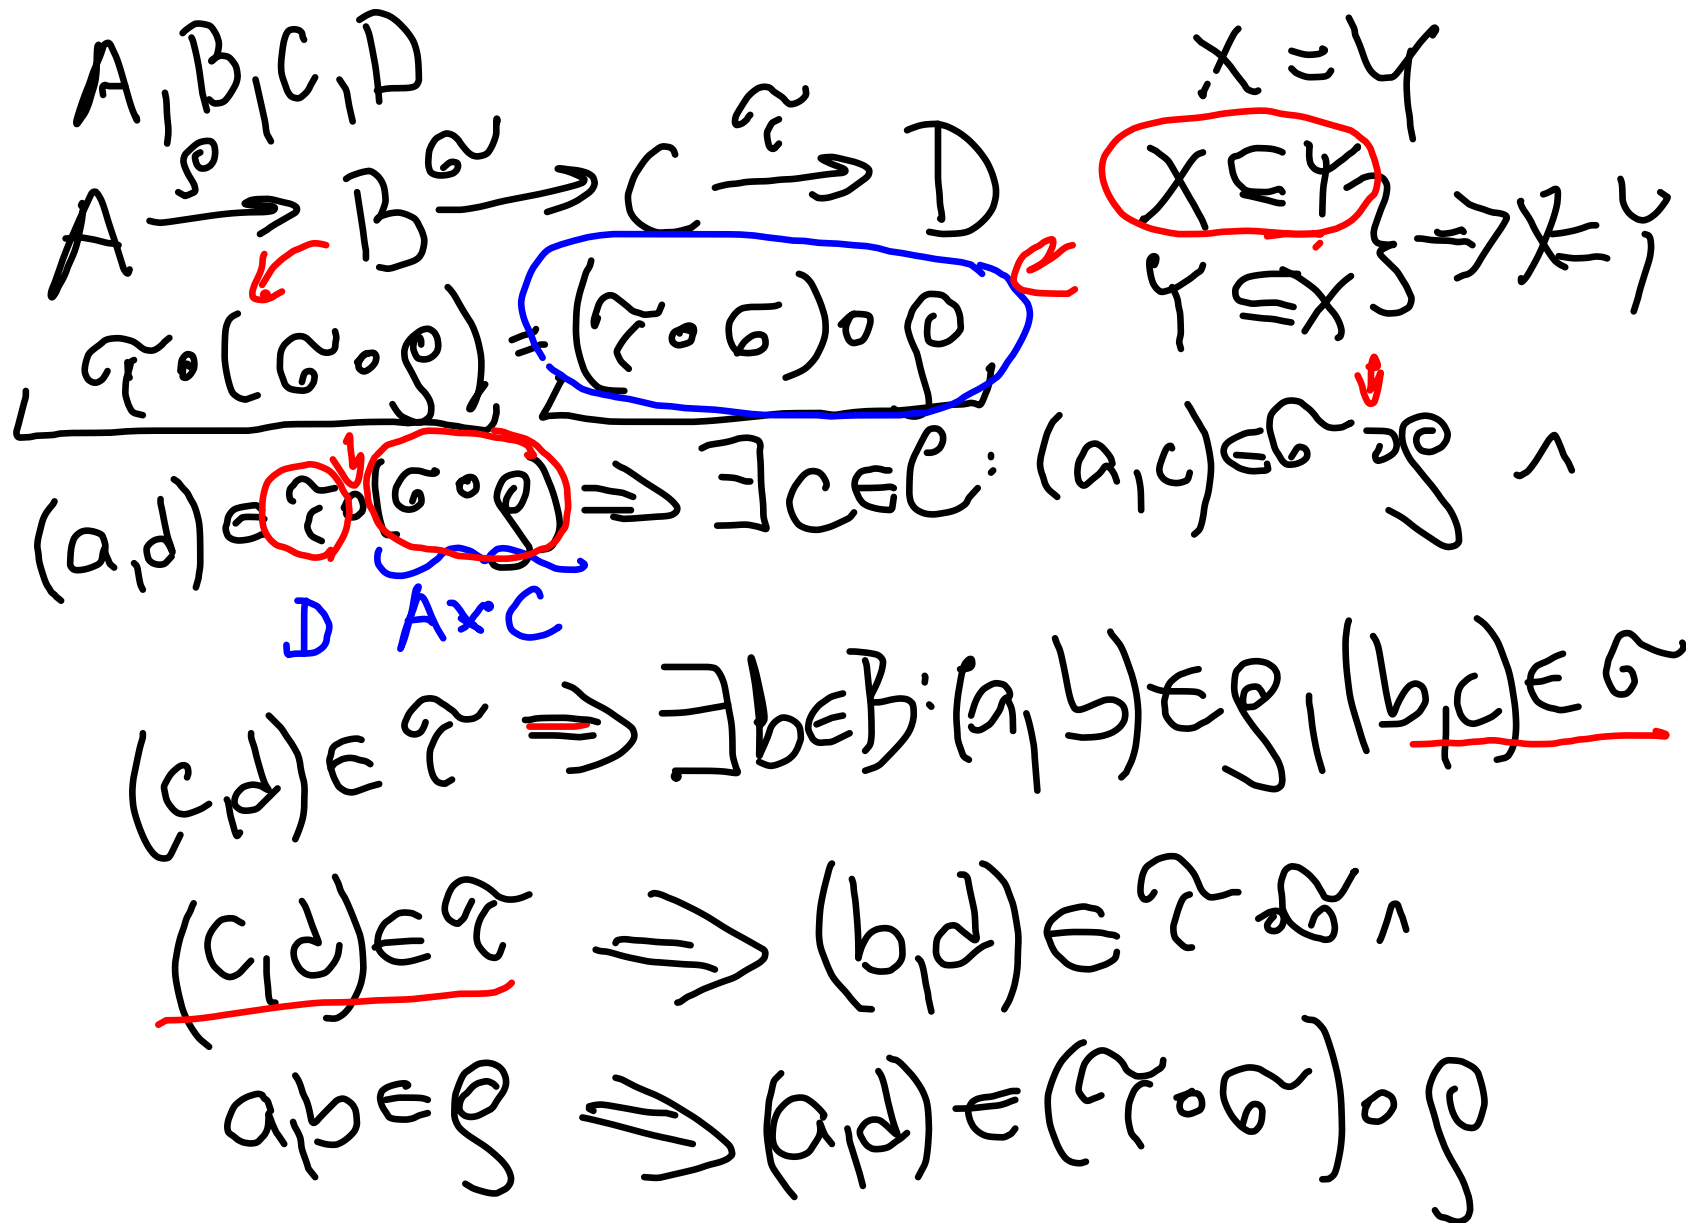 A, B, C, D
X = Y
A →ρ B →σ C →τ D
X ⊆ Y
Y ⊆ X } ⇒ X = Y
τ∘(σ∘ρ) = (τ∘σ)∘ρ
(a,d) ∈ τ∘(σ∘ρ) ⇒ ∃ c ∈ C : (a,c) ∈ σ∘ρ ∧
D A×C
(c,d) ∈ τ ⇒ ∃ b ∈ B : (a,b) ∈ ρ, (b,c) ∈ σ
(c,d) ∈ τ ⇒ (b,d) ∈ τ∘σ ∧
a,b ∈ ρ ⇒ (a,d) ∈ (τ∘σ)∘ρ